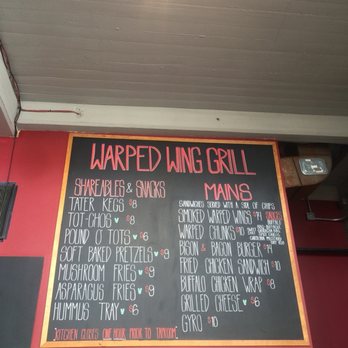 WARPED WING GRILL
SHAREABLES & SNACKS
TATER KEGS $8
TOT-CHOS $8
POUND O TOTS $6
SOFT BAKED PRETZELS $9
MUSHROOM FRIES $9
ASPARAGUS FRIES $9
HUMMUS TRAY $6
MAINS
SANDWICHES SERVED WITH A SIDE OF CHIPS
SMOKED WARPED WINGS $14
WARPED CHUNKS $10
BISON & BACON BURGER $14
FRIED CHICKEN SANDWICH $10
BUFFALO CHICKEN WRAP $8
GRILLED CHEESE $6
GYRO $10
*KITCHEN CLOSES ONE HOUR PRIOR TO TAPROOM*